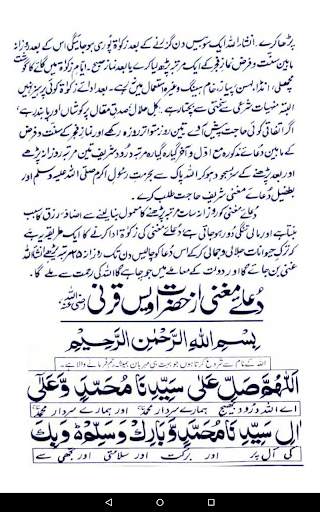 پڑھا کرے۔ انشاء اللہ ایک سو بیس دن گزرنے کے بعد زکوٰۃ پوری ہو جائیگی اس کے بعد روزانہ
مابین سنت و فرض نماز فجر کے ایک مرتبہ پڑھ لیا کرے یا بعد نماز صبح۔ ایام زکوٰۃ میں گائے کا گوشت
مچھلی، انڈا، لہسن، پیاز، خام ہینگ وغیرہ استعمال نہ کرے۔ بعد ادائے زکوٰۃ کوئی پرہیز نہیں
البتہ منہیات شرعی سے سختی سے بچتا رہے۔ اکل حلال، صدق مقال پر کوشاں اور پابند رہے،
اگر اتفاقی کوئی حاجت پیش آئے تین روز متواتر روزہ رکھے اور نماز فجر کے سنت و فرض
کے مابین دعائے مذکورہ مع اول و آخر گیارہ گیارہ مرتبہ درود شریف تین مرتبہ روزانہ پڑھے
اور بعد پڑھنے کے سر بسجود ہو کر اللہ پاک سے بحرمت رسول اکرم صلی اللہ علیہ وسلم اور
بطفیل دعائے مغنی شریف حاجت طلب کرے۔
دعائے مغنی کو روزانہ سات مرتبہ پڑھنے کا معمول بنا لینے سے اضافہ رزق کا سبب
بنتا ہے اور مالی تنگی دور ہو جاتی ہے دعائے مغنی کی زکوٰۃ ادا کرنے کا ایک طریقہ یہ ہے
کہ ترک حیوانات جلالی و جمالی کر کے اس دعا کو چالیس دن تک روزانہ ۲۵ مرتبہ پڑھے انشاء اللہ
غنی بن جائے گا اور دولت کے معاملے میں جو چاہے گا اللہ کی رحمت سے ملے گا۔
دُعائے مغنی از حضرت اویس قرنی رضی اللہ عنہ
بِسْمِ اللهِ الرَّحْمٰنِ الرَّحِيْمِ
اللہ کے نام سے شروع کرتا ہوں جو بہت ہی مہربان ہمیشہ رحم فرمانے والا ہے۔
اَللّٰهُمَّ صَلِّ عَلٰى سَيِّدِنَا مُحَمَّدٍ وَّعَلٰى
اے اللہ درود بھیج ہمارے سردار محمدؐ اور ہمارے سردار محمدؐ
اٰلِ سَيِّدِنَا مُحَمَّدٍ وَّبَارِكْ وَسَلِّمْ وَبِكَ
کی آل پر اور برکت اور سلامتی اور تجھی سے